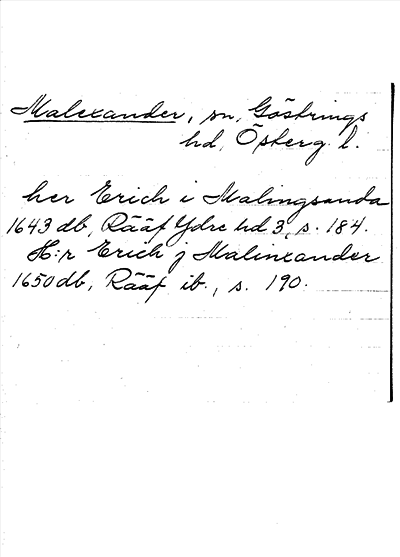 Malexander, sn, Göstrings
hd, Österg. l.
her Erich i Malingsanda
1643 db, Rääf Ydre hd 3, s. 184.
H:r Erich j Malinxander
1650 db, Rääf ib., s. 190.